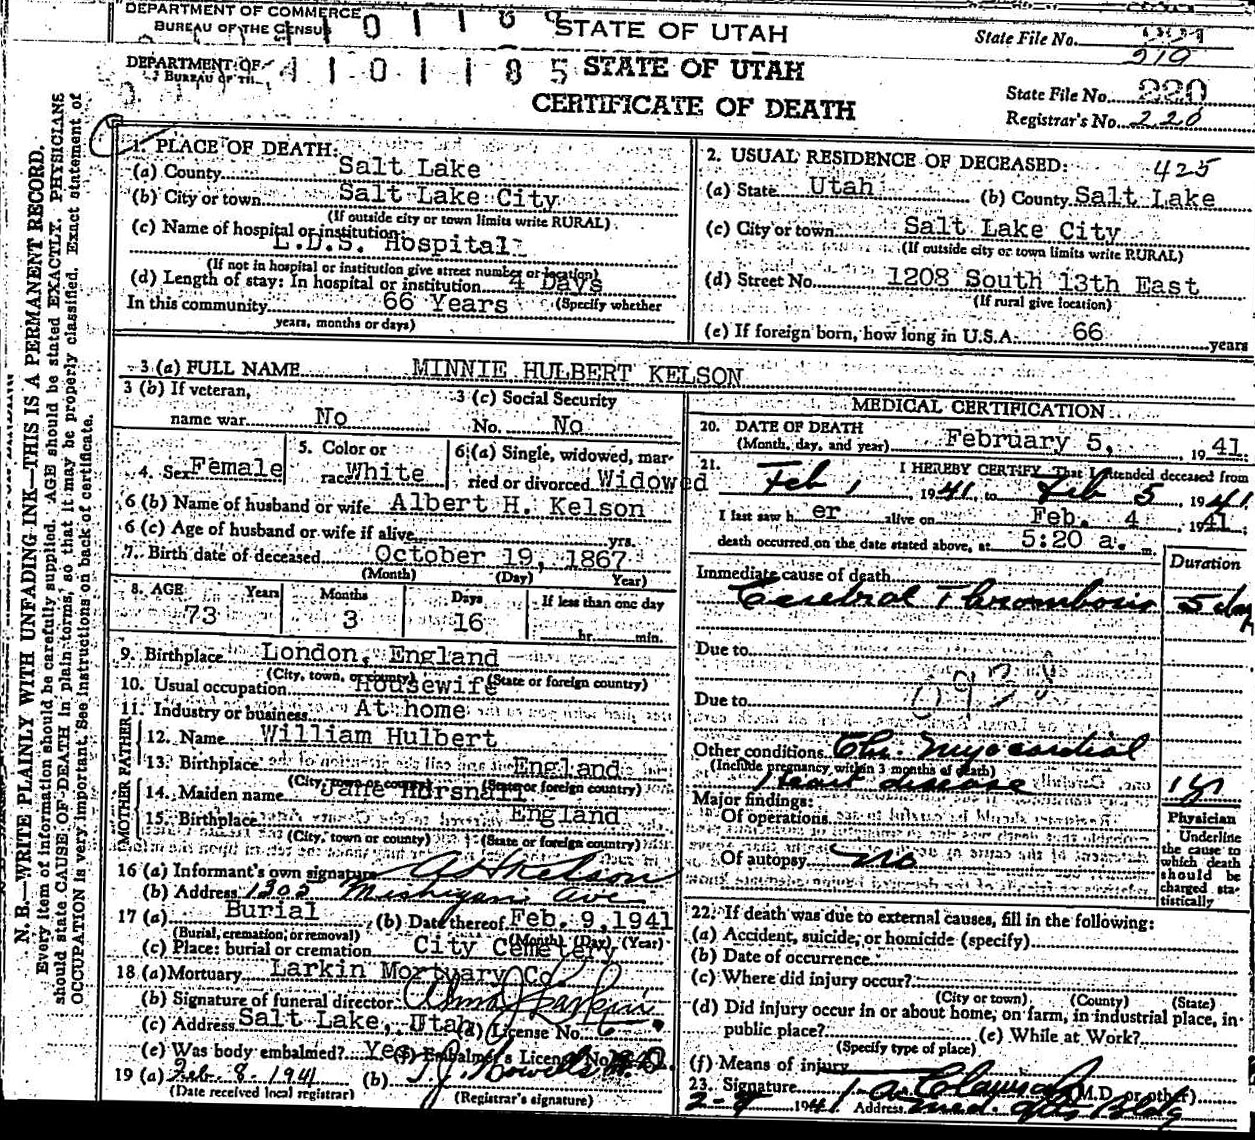 DEPARTMENT OF COMMERCE
BUREAU OF THE CENSUS
STATE OF UTAH
State File No.
219
DEPARTMENT OF
STATE OF UTAH
CERTIFICATE OF DEATH
State File No. 220
Registrar's No. 220
N. B.—WRITE PLAINLY WITH UNFADING INK—THIS IS A PERMANENT RECORD.
Every item of information should be carefully supplied. AGE should be stated EXACTLY. PHYSICIANS
should state CAUSE OF DEATH in plain terms, so that it may be properly classified. Exact statement of
OCCUPATION is very important. See instructions on back of certificate.
1. PLACE OF DEATH:
(a) County Salt Lake
(b) City or town Salt Lake City
(If outside city or town limits write RURAL)
(c) Name of hospital or institution:
L.D.S. Hospital
(If not in hospital or institution give street number or location)
(d) Length of stay: In hospital or institution 4 Days
In this community 66 Years (Specify whether
years, months or days)
2. USUAL RESIDENCE OF DECEASED: 425
(a) State Utah (b) County Salt Lake
(c) City or town Salt Lake City
(If outside city or town limits write RURAL)
(d) Street No. 1208 South 13th East
(If rural give location)
(e) If foreign born, how long in U.S.A. 66 years
3 (a) FULL NAME MINNIE HULBERT KELSON
3 (b) If veteran,
name war No
3 (c) Social Security
No. No
4. Sex Female
5. Color or
race White
6 (a) Single, widowed, mar-
ried or divorced Widowed
6 (b) Name of husband or wife Albert H. Kelson
6 (c) Age of husband or wife if alive yrs.
7. Birth date of deceased October 19, 1867
(Month) (Day) Year)
8. AGE Years Months Days If less than one day
73 3 16 hr. min.
9. Birthplace London, England
(City, town, or county) (State or foreign country)
10. Usual occupation Housewife
11. Industry or business At home
FATHER
12. Name William Hulbert
13. Birthplace England
(City, town or county) (State or foreign country)
MOTHER
14. Maiden name Jane
15. Birthplace England
(City, town or county) (State or foreign country)
16 (a) Informant's own signature A H Kelson
(b) Address 1302 Michigan Ave
17 (a) Burial (b) Date thereof Feb. 9, 1941
(Burial, cremation, or removal) (Month) (Day) (Year)
(c) Place: burial or cremation City Cemetery
18 (a) Mortuary Larkin Mortuary Co
(b) Signature of funeral director Alma J Larkin
(c) Address Salt Lake, Utah (d) License No. 6
(e) Was body embalmed? Yes (f) Embalmer's License No.
19 (a) Feb. 8. 1941 (b)
(Date received local registrar) (Registrar's signature)
MEDICAL CERTIFICATION
20. DATE OF DEATH
(Month, day, and year) February 5, 1941.
21. I HEREBY CERTIFY That I attended deceased from
Feb 1, 1941, to Feb 5, 1941.
I last saw h er alive on Feb. 4, 1941
death occurred on the date stated above, at 5:20 a. m.
Duration
Immediate cause of death
Cerebral Thrombosis 5 days
Due to
Due to
Other conditions Chr. Myocardial
(Include pregnancy within 3 months of death)
Heart disease 1 yr
Major findings:
Of operations
Of autopsy no
Physician
Underline
the cause to
which death
should be
charged sta-
tistically
22. If death was due to external causes, fill in the following:
(a) Accident, suicide, or homicide (specify)
(b) Date of occurrence
(c) Where did injury occur?
(City or town) (County) (State)
(d) Did injury occur in or about home, on farm, in industrial place, in
public place? (e) While at Work?
(Specify type of place)
(f) Means of injury
23. Signature (M.D. or other)
1941 Address Med. Arts Bldg